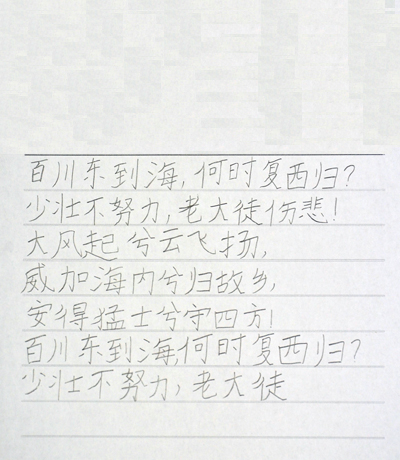 百川东到海,何时复西归?
少壮不努力,老大徒伤悲!
大风起兮云飞扬,
威加海内兮归故乡,
安得猛士兮守四方!
百川东到海,何时复西归?
少壮不努力,老大徒